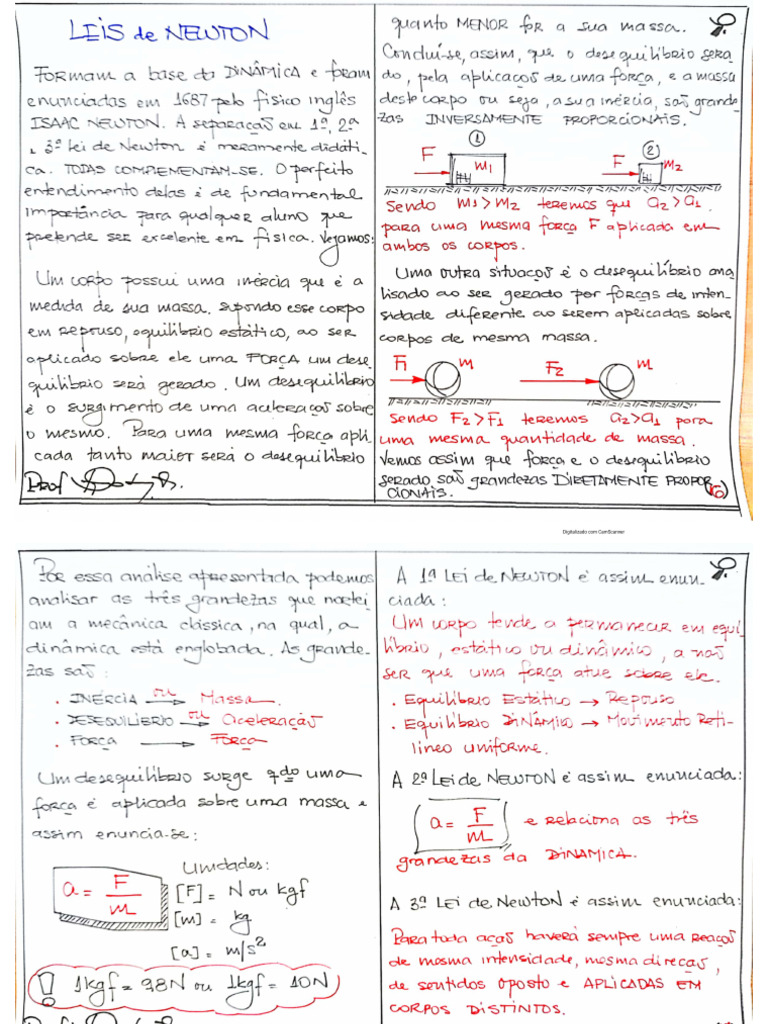 LEIS de NEWTON
Formam a base da DINÂMICA e foram
enunciadas em 1687 pelo físico inglês
ISAAC NEWTON. A separação em 1ª, 2ª
e 3ª lei de Newton é meramente didáti-
ca. TODAS COMPLEMENTAM-SE. O perfeito
entendimento delas é de fundamental
importância para qualquer aluno que
pretende ser excelente em física. Vejamos:
Um corpo possui uma inércia que é a
medida de sua massa. Supondo esse corpo
em repouso, equilíbrio estático, ao ser
aplicado sobre ele uma FORÇA um dese-
quilíbrio será gerado. Um desequilíbrio
é o surgimento de uma aceleração sobre
o mesmo. Para uma mesma força apli-
cada tanto maior será o desequilíbrio
Prof
quanto MENOR for a sua massa.
Conclui-se, assim, que o desequilíbrio gera
do, pela aplicação de uma força, e a massa
deste corpo ou seja, a sua inércia, são grande
zas INVERSAMENTE PROPORCIONAIS.
① ②
F m1 F m2
Sendo m1 > m2 teremos que a2 > a1
para uma mesma força F aplicada em
ambos os corpos.
Uma outra situação é o desequilíbrio ana
lisado ao ser gerado por forças de inten-
sidade diferente ao serem aplicadas sobre
corpos de mesma massa.
F1 m F2 m
Sendo F2 > F1 teremos a2 > a1 para
uma mesma quantidade de massa.
Vemos assim que força e o desequilíbrio
gerado são grandezas DIRETAMENTE PROPOR
CIONAIS.
Digitalizado com CamScanner
Por essa análise apresentada podemos
analisar as três grandezas que nortei
am a mecânica clássica, na qual, a
dinâmica está englobada. As grande-
zas são:
• INÉRCIA ou → Massa.
• DESEQUILÍBRIO ou → Aceleração
• FORÇA → FORÇA
Um desequilíbrio surge qdo uma
força é aplicada sobre uma massa e
assim enuncia-se:
a = F/m
Unidades:
[F] = N ou kgf
[m] = kg
[a] = m/s²
! 1kgf = 9,8N ou 1kgf = 10N
Prof
A 1ª LEI de NEWTON é assim enun-
ciada:
Um corpo tende a permanecer em equi
líbrio, estático ou dinâmico, a não
ser que uma força atue sobre ele.
• Equilíbrio Estático → Repouso
• Equilíbrio DINÂMICO → Movimento Reti-
lineo uniforme.
A 2ª Lei de NEWTON é assim enunciada:
a = F/m e relaciona as três
grandezas da DINAMICA.
A 3ª LEI de NEWTON é assim enunciada:
Para toda ação haverá sempre uma reação
de mesma intensidade, mesma direção,
de sentidos oposto e APLICADAS EM
CORPOS DISTINTOS.